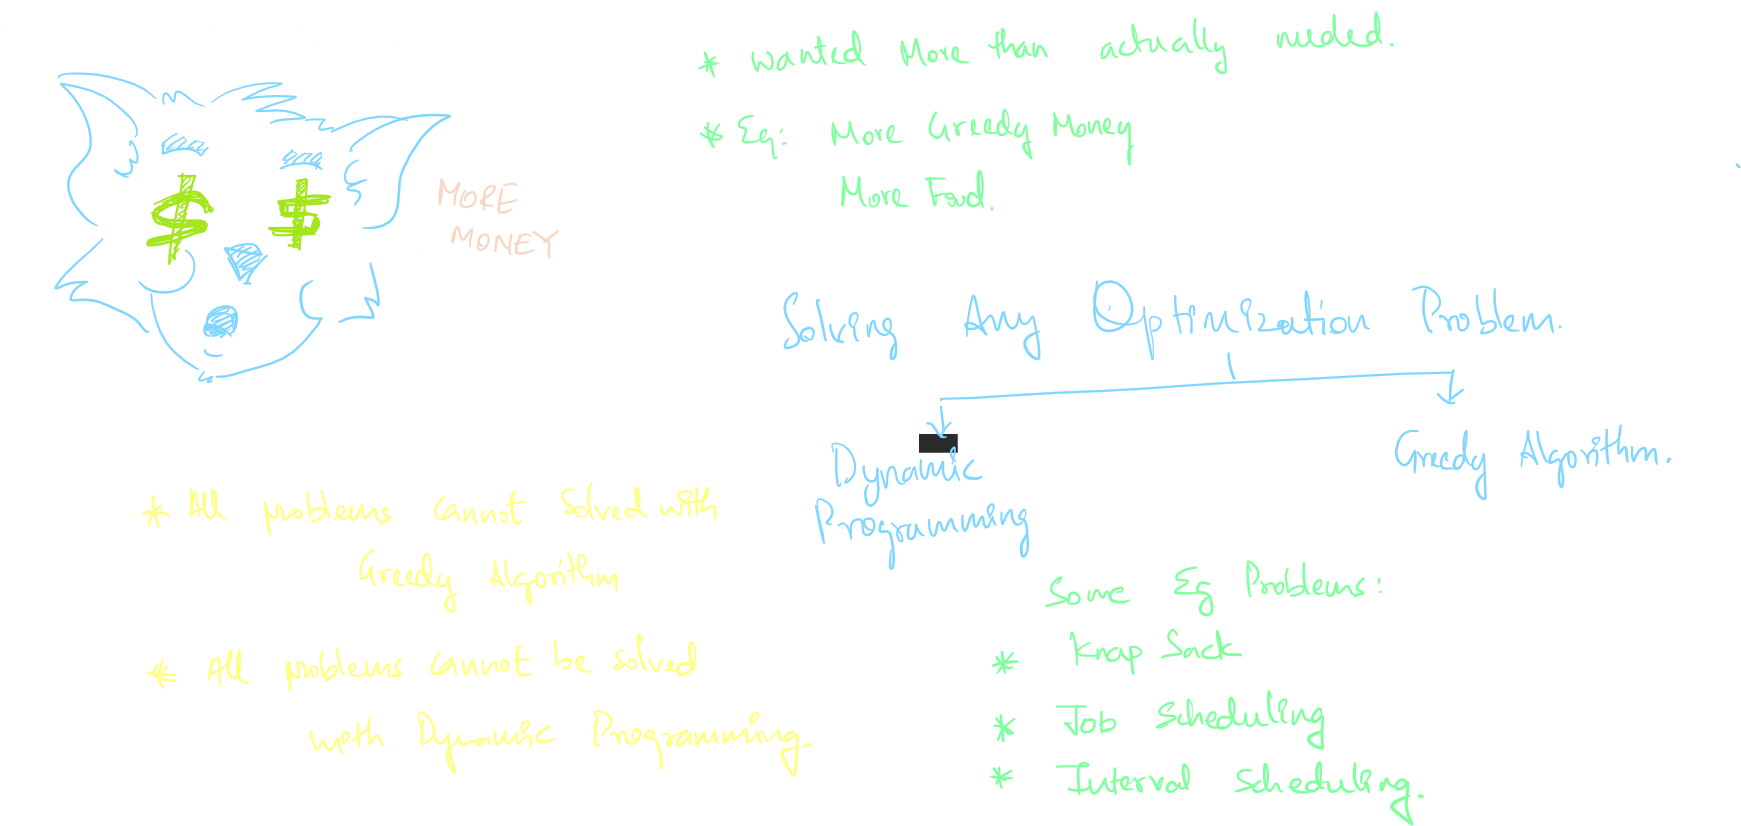 * Wanted More than actually needed.
* Eg: More Greedy Money
More Food.
MORE
MONEY
Solving Any Optimization Problem.
Dynamic
Programming
Greedy Algorithm.
* All problems cannot Solved with
Greedy Algorithm
* All problems cannot be solved
with Dynamic Programming
Some Eg Problems:
* Knap Sack
* Job Scheduling
* Interval Scheduling.